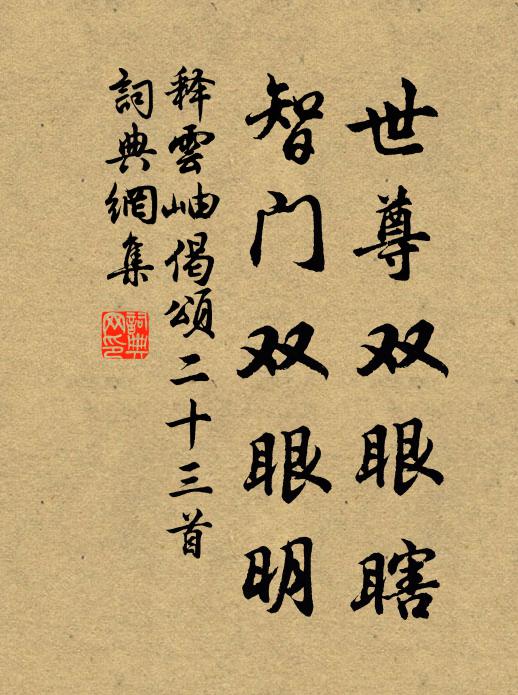 世尊双眼瞎
智门双眼明
释雲岫偈頌二十三首
詞典網集
詞典网印